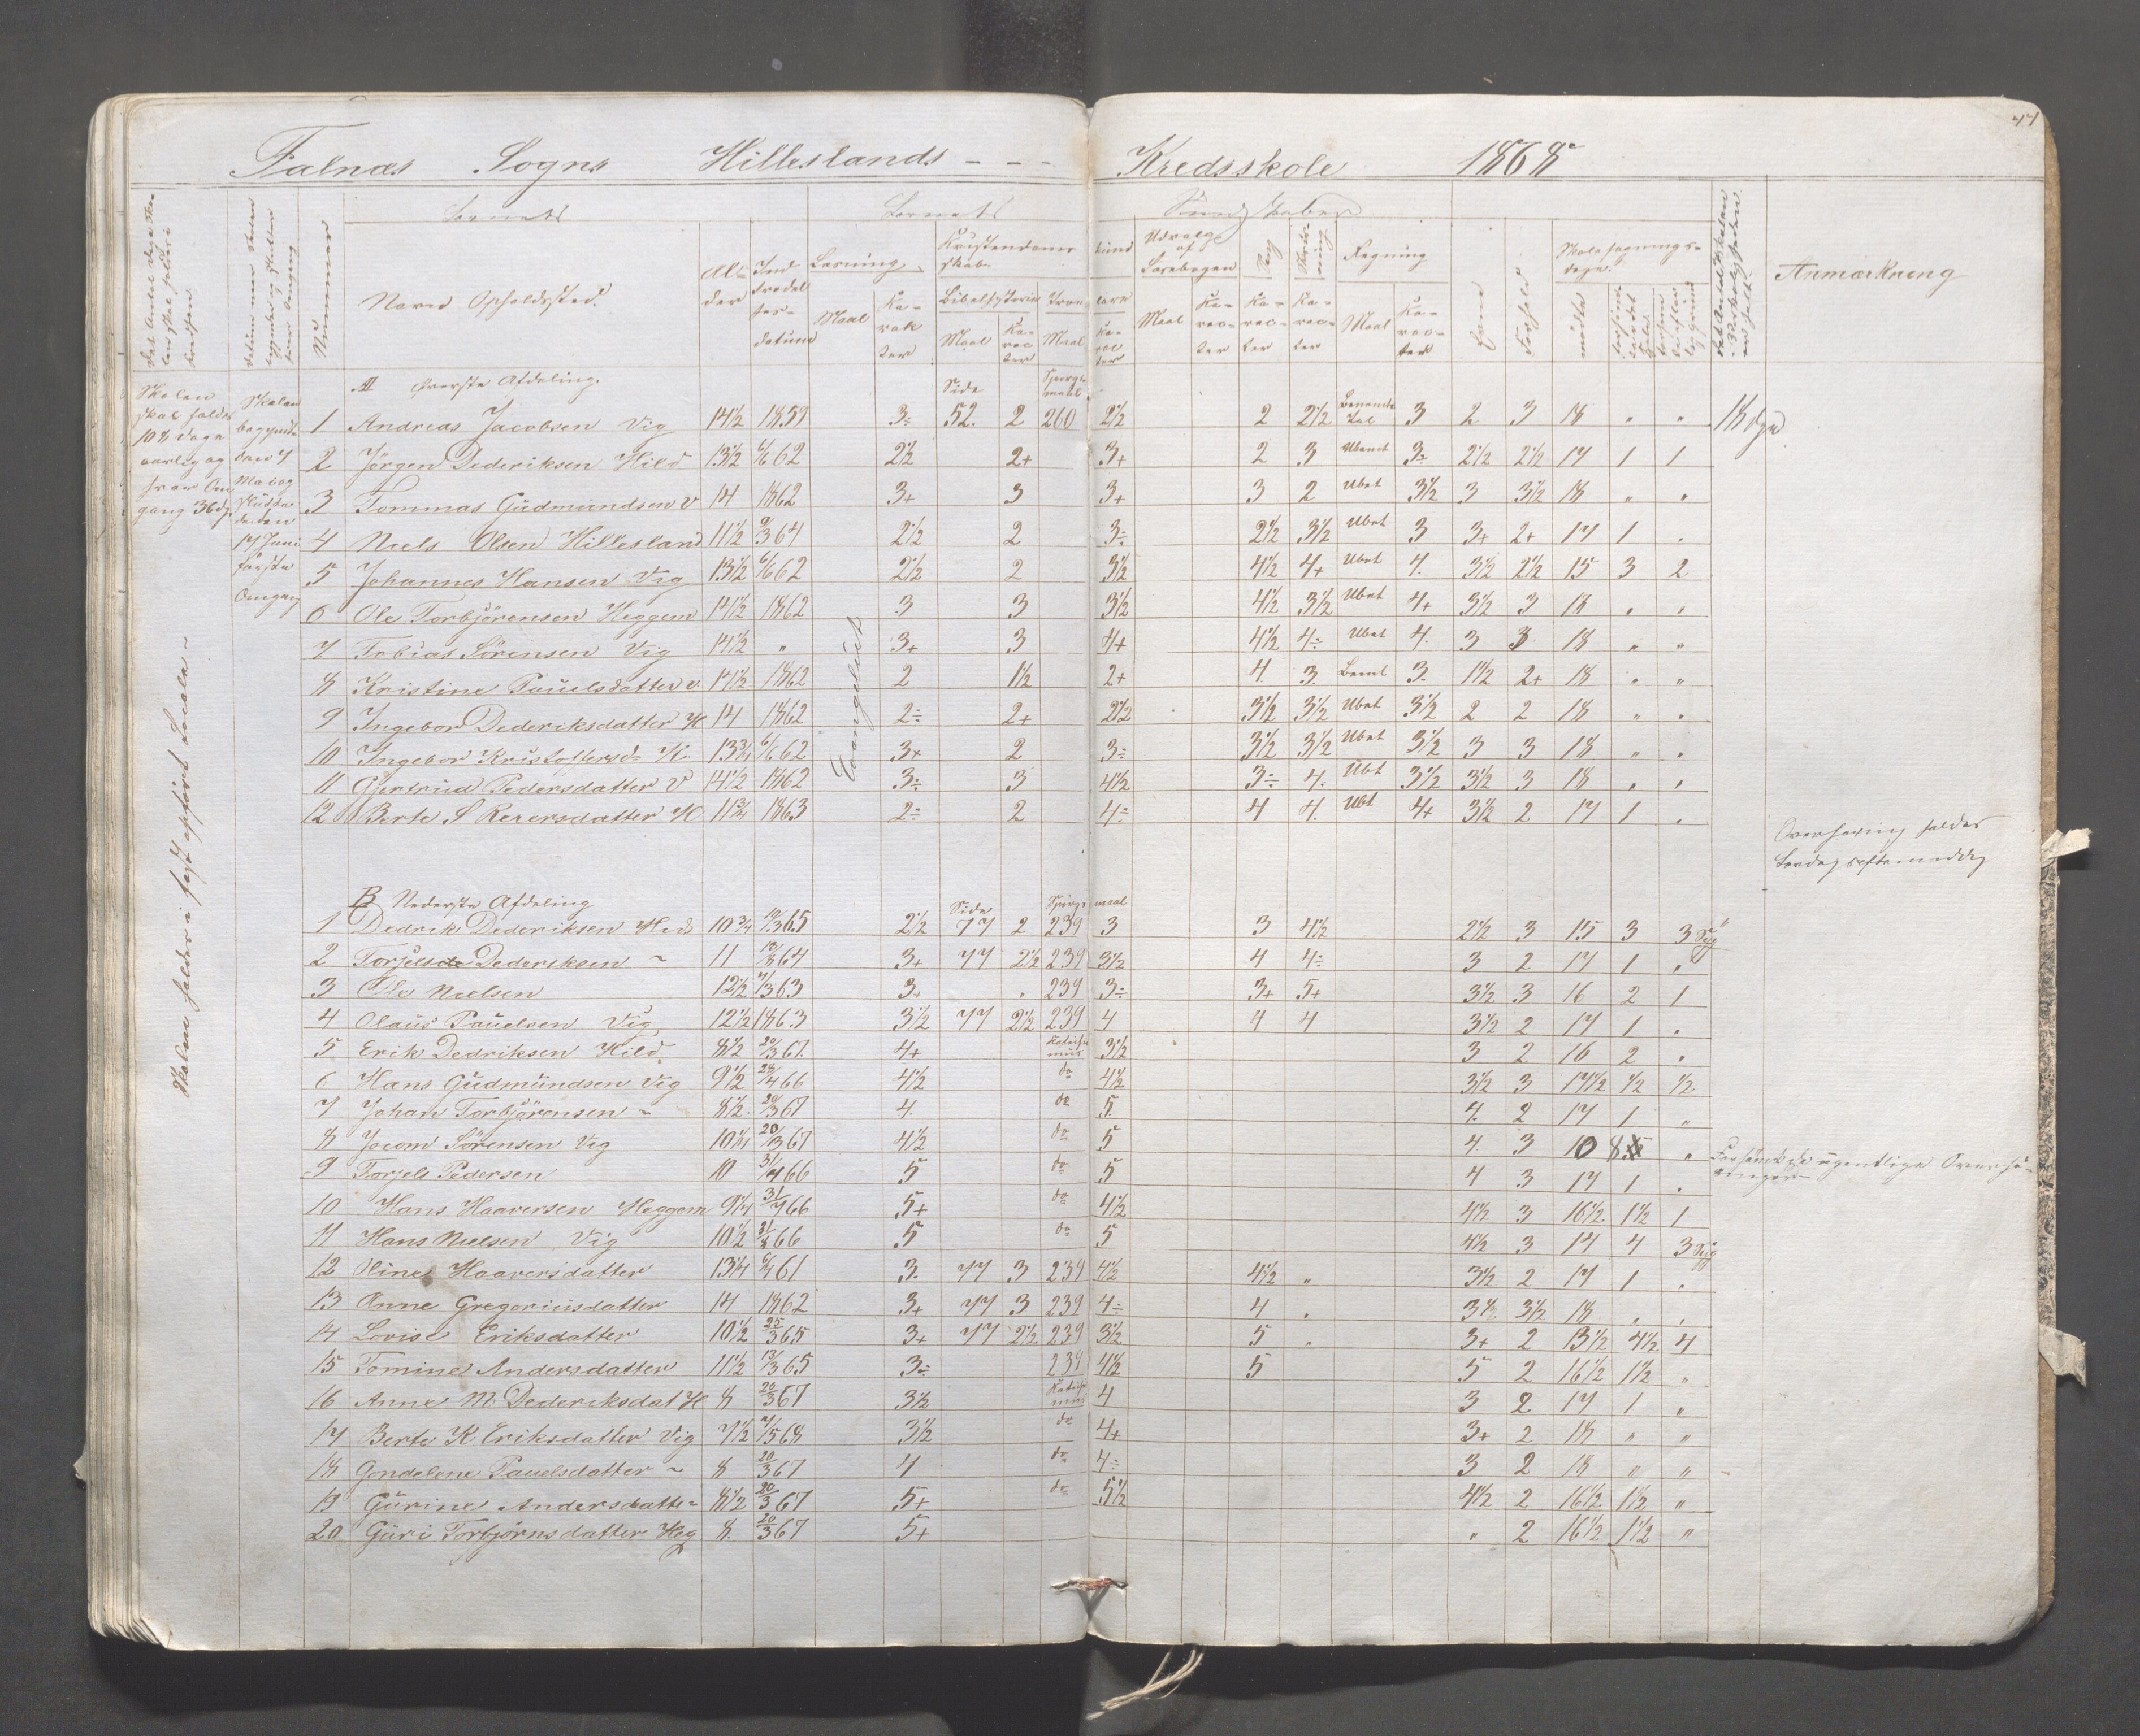 47
Falnæs Sogns Hilleslands - - - Kredsskole 1868
Barnets Barnets Kundskaber
Nummer
Navn Opholdssted. Alder Indtrædelsesdatum Læsning Kristendomskundskab. Udvalg af Læsebogen Sang Skrivning Regning Skolesøgningsdage. Anmærkning
Maal Karakter Bibelhistorie Maal Karacter Maal Karacter Maal Karacter Karacter Karacter Maal Karacter Evne Forhold mødte
Skolen skal holdes 108 dage aarlig og hver Omgang 36 dg
Skolen begyndte den 7 Mai og sluttede den 17 Juni første Omgang
Skolen holdes i fast Locale ~
Evangeliet
A Øverste Afdeling. Side Spørgsmaal
1 Andreas Jacobsen Vig 14½ 1859 3÷ 52. 2 260 2½ 2 2½ Benævnte Tal 3 2 3 18 " " 18 dge
2 Jörgen Dederiksen Hild 13½ 6/6 62 2½ 2+ 3+ 2 3 Ubent 3÷ 2½ 2½ 17 1 1
3 Tommas Gudmundsen V 14 1862 3+ 3 3+ 3 2 Ubet 3½ 3 3½ 18 " "
4 Niels Olsen Hillesland 11½ 9/3 64 2½ 2 3÷ 2½ 3½ Ubet 3 3+ 2+ 17 1 .
5 Johannes Hansen Vig 13½ 6/6 62 2½ 2 3½ 4½ 4+ Ubet 4. 3½ 2½ 15 3 2
6 Ole Torbjörensen Heggem 14½ 1862 3 3 3½ 4½ 3½ Ubet 4+ 3½ 3 18 . .
7 Tobias Sörensen Vig 14½ " 3+ 3 4+ 4½ 4÷ Ubet 4. 3 3 18 " "
8 Kristine Pauelsdatter v. 14½ 1862 2 1½ 2+ 4. 3. Bent 3. 1½ 2+ 18 " "
9 Ingebor Dederiksdatter H 14 1862 2÷ 2+ 2½ 3½ 3½ Ubet 3½ 2 2 18 " .
10 Ingebor Kristoffersd= H. 13¾ 6/6 62 3+ 2 3÷ 3½ 3½ Ubet 3½ 3 3 18 " .
11 Gjertrud Pedersdatter V 14½ 1862 3÷ 3 4½ 3÷ 4. Ubt 3½ 3½ 3 18 . .
12 Berte S Reiersdatter H 11¾ 1863 2÷ 2 4÷ 4 4. Ubt 4+ 3½ 2 17 1 .
Overhøring holdes
Lørdag eftermiddag
B Nederste Afdeling Side Spørgsmaal
1 Dedrik Dederiksen Hild 10¾ 19/3 65 2½ 77 2 239 3 3 4½ 2½ 3 15 3 3 Syg
2 Torjels Dederiksen ~ 11 13/8 64 3+ 77 2½ 239 3½ 4 4÷ 3 2 17 1 "
3 Ole Nielsen 12½ 7/3 63 3+ . 239 3÷ 3+ 5+ 3½ 3 16 2 1
4 Olaus Pauelsen Vig 12½ 1863 3½ 77 2½ 239 4 4 4 3½ 2 17 1 .
5 Erik Dedriksen Hild. 8½ 20/3 67. 4+ Katechismus 3½ 3 2 16 2 .
6 Hans Gudmundsen Vig 9½ 24/4 66 4½ do 4½ 3½ 3 17½ ½ ½
7 Johan Torbjörensen ~ 8½ 20/3 67 4. do 5. 4. 2 17 1 "
8 Jocom Sörensen Vig 10¼ 20/3 67 4½ do 5 4. 3 10 8 "
9 Torjels Pedersen 10 31/4 66 5 do 5 4 3 17 1 . Forsømte de ugentlige Overhøringer
10 Hans Haaversen Heggem 9¼ 31/4 66 5+ do 4½ 4½ 3 16½ 1½ 1
11 Hans Nielsen Vig 10½ 31/8 66 5 do 5 4½ 3 14 4 3 Syg
12 Oline Haaversdatter 13¼ 6/4 61 3. 77 3 239 4½ 4½ " 3½ 2 17 1 .
13 Anne Gregoriusdatter 14 1862 3+ 77 3 239 4÷ 4 . 3½ 3½ 18 . .
14 Lovise Eriksdatter 10½ 25/3 65 3+ 77 2½ 239 3½ 5 . 3+ 2 13½ 4½ 4
15 Tomine Andersdatter 11½ 13/3 65 3÷ 239 4½ 5 5 2 16½ 1½ "
16 Anne M. Dederiksdat H 8 20/3 67 3½ Katechismus 4 3 2 17 1 "
17 Berte K Eriksdatter Vig 7½ 7/5 68 3½ do 4+ 3+ 2 18 " "
18 Gondelene Pauelsdatter ~ 8 20/3 67 4 do 4÷ 3 2 18 " "
19 Gurine Andersdatter 8½ 20/3 67 5+ do 5½ 4½ 2 16½ 1½ "
20 Guri Torbjörnsdatter Heg 8. 20/3 67 5+ " 2 16½ 1½ "